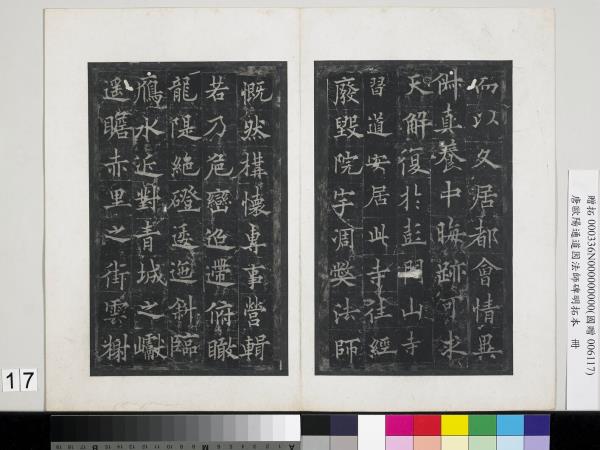 而以久居都會情異
真養中晦跡可求
天解復於彭門山寺
習道安居此寺往經
廢毀院宇凋弊法師
慨然構懷專事營輯
若乃危巒迢遰俯瞰
龍隄絶磴逶迤斜臨
鴈水近對青城之巘
遙瞻赤里之街雲榭
贈拓 000336N000000000(國贈 006117)
唐歐陽通道因法師碑明拓本 冊
17